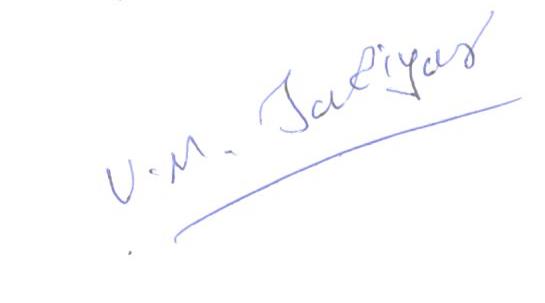 V.M. Jaliyar